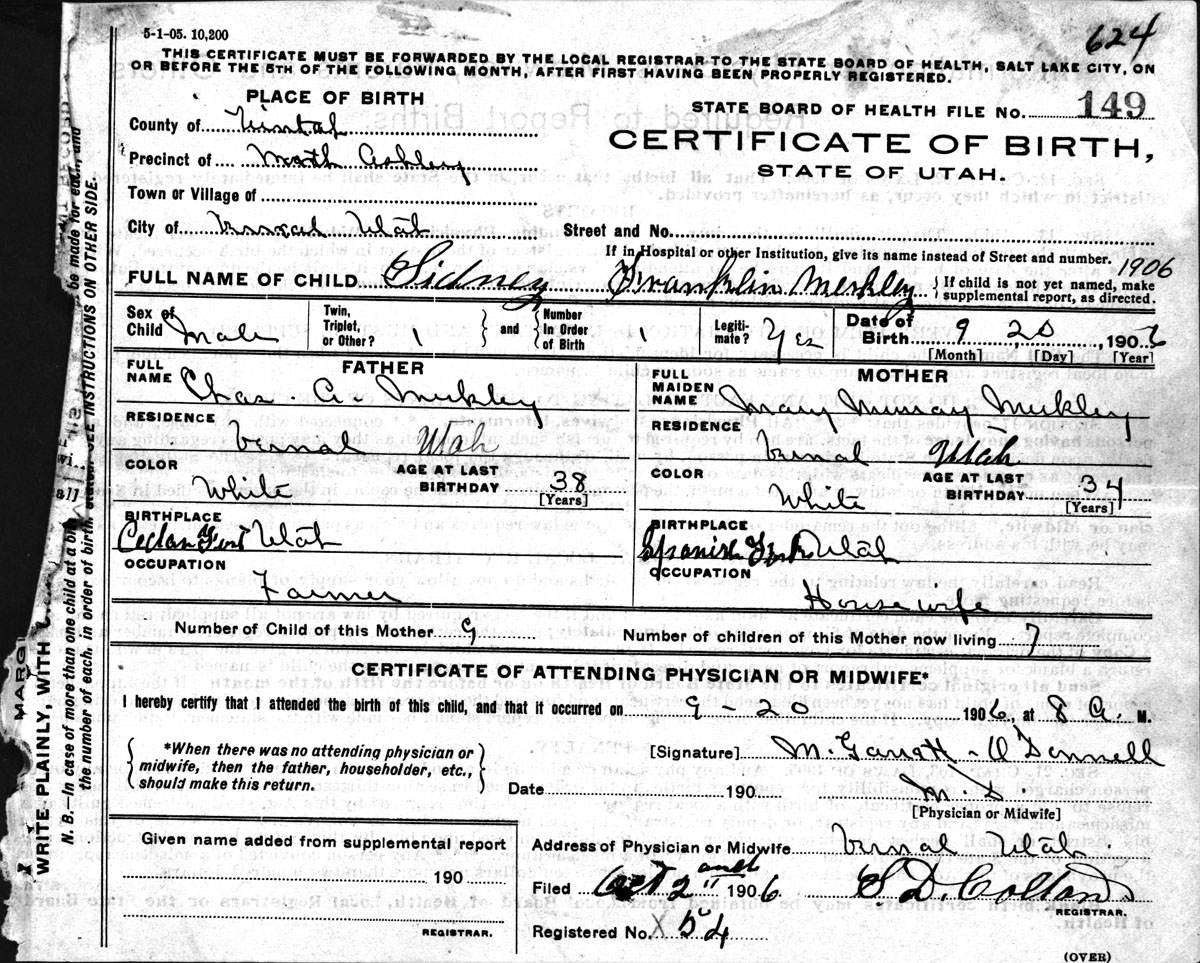 5-1-05. 10,200
624
THIS CERTIFICATE MUST BE FORWARDED BY THE LOCAL REGISTRAR TO THE STATE BOARD OF HEALTH, SALT LAKE CITY, ON
OR BEFORE THE 5TH OF THE FOLLOWING MONTH, AFTER FIRST HAVING BEEN PROPERLY REGISTERED.
PLACE OF BIRTH
STATE BOARD OF HEALTH FILE No. 149
County of Uintah
CERTIFICATE OF BIRTH,
Precinct of North Ashley
STATE OF UTAH.
Town or Village of
City of Vernal Utah
Street and No.
If in Hospital or other Institution, give its name instead of Street and number.
1906
FULL NAME OF CHILD Sidney Franklin Merkley { If child is not yet named, make
supplemental report, as directed.
Sex of
Child Male
Twin,
Triplet,
or Other? 1
} and {
Number
In Order
of Birth 1
Legiti-
mate? Yes
Date of
Birth 9 20, 1906
[Month] [Day] [Year]
FATHER
FULL
NAME Chas. A. Merkley
RESIDENCE
Vernal Utah
COLOR
White
AGE AT LAST
BIRTHDAY 38
[Years]
BIRTHPLACE
Cedar Fort Utah
OCCUPATION
Farmer
MOTHER
FULL
MAIDEN
NAME Mary Murray Merkley
RESIDENCE
Vernal Utah
COLOR
White
AGE AT LAST
BIRTHDAY 34
[Years]
BIRTHPLACE
Spanish Fork Utah
OCCUPATION
Housewife
Number of Child of this Mother 9
Number of children of this Mother now living 7
CERTIFICATE OF ATTENDING PHYSICIAN OR MIDWIFE*
I hereby certify that I attended the birth of this child, and that it occurred on 9 20 1906, at 8 A. M.
{ *When there was no attending physician or
midwife, then the father, householder, etc.,
should make this return. }
[Signature] M. Garrett-O'Donnell
Date 190 M. D
[Physician or Midwife]
Given name added from supplemental report
190
REGISTRAR.
Address of Physician or Midwife Vernal Utah
Filed Oct 2nd 1906 S D Colton
REGISTRAR.
Registered No. X 54
(OVER)
MARG
WRITE PLAINLY, WITH
N. B. In case of more than one child at a bi be made for each, and
the number of each, in order of birth, stated. SEE INSTRUCTIONS ON OTHER SIDE.